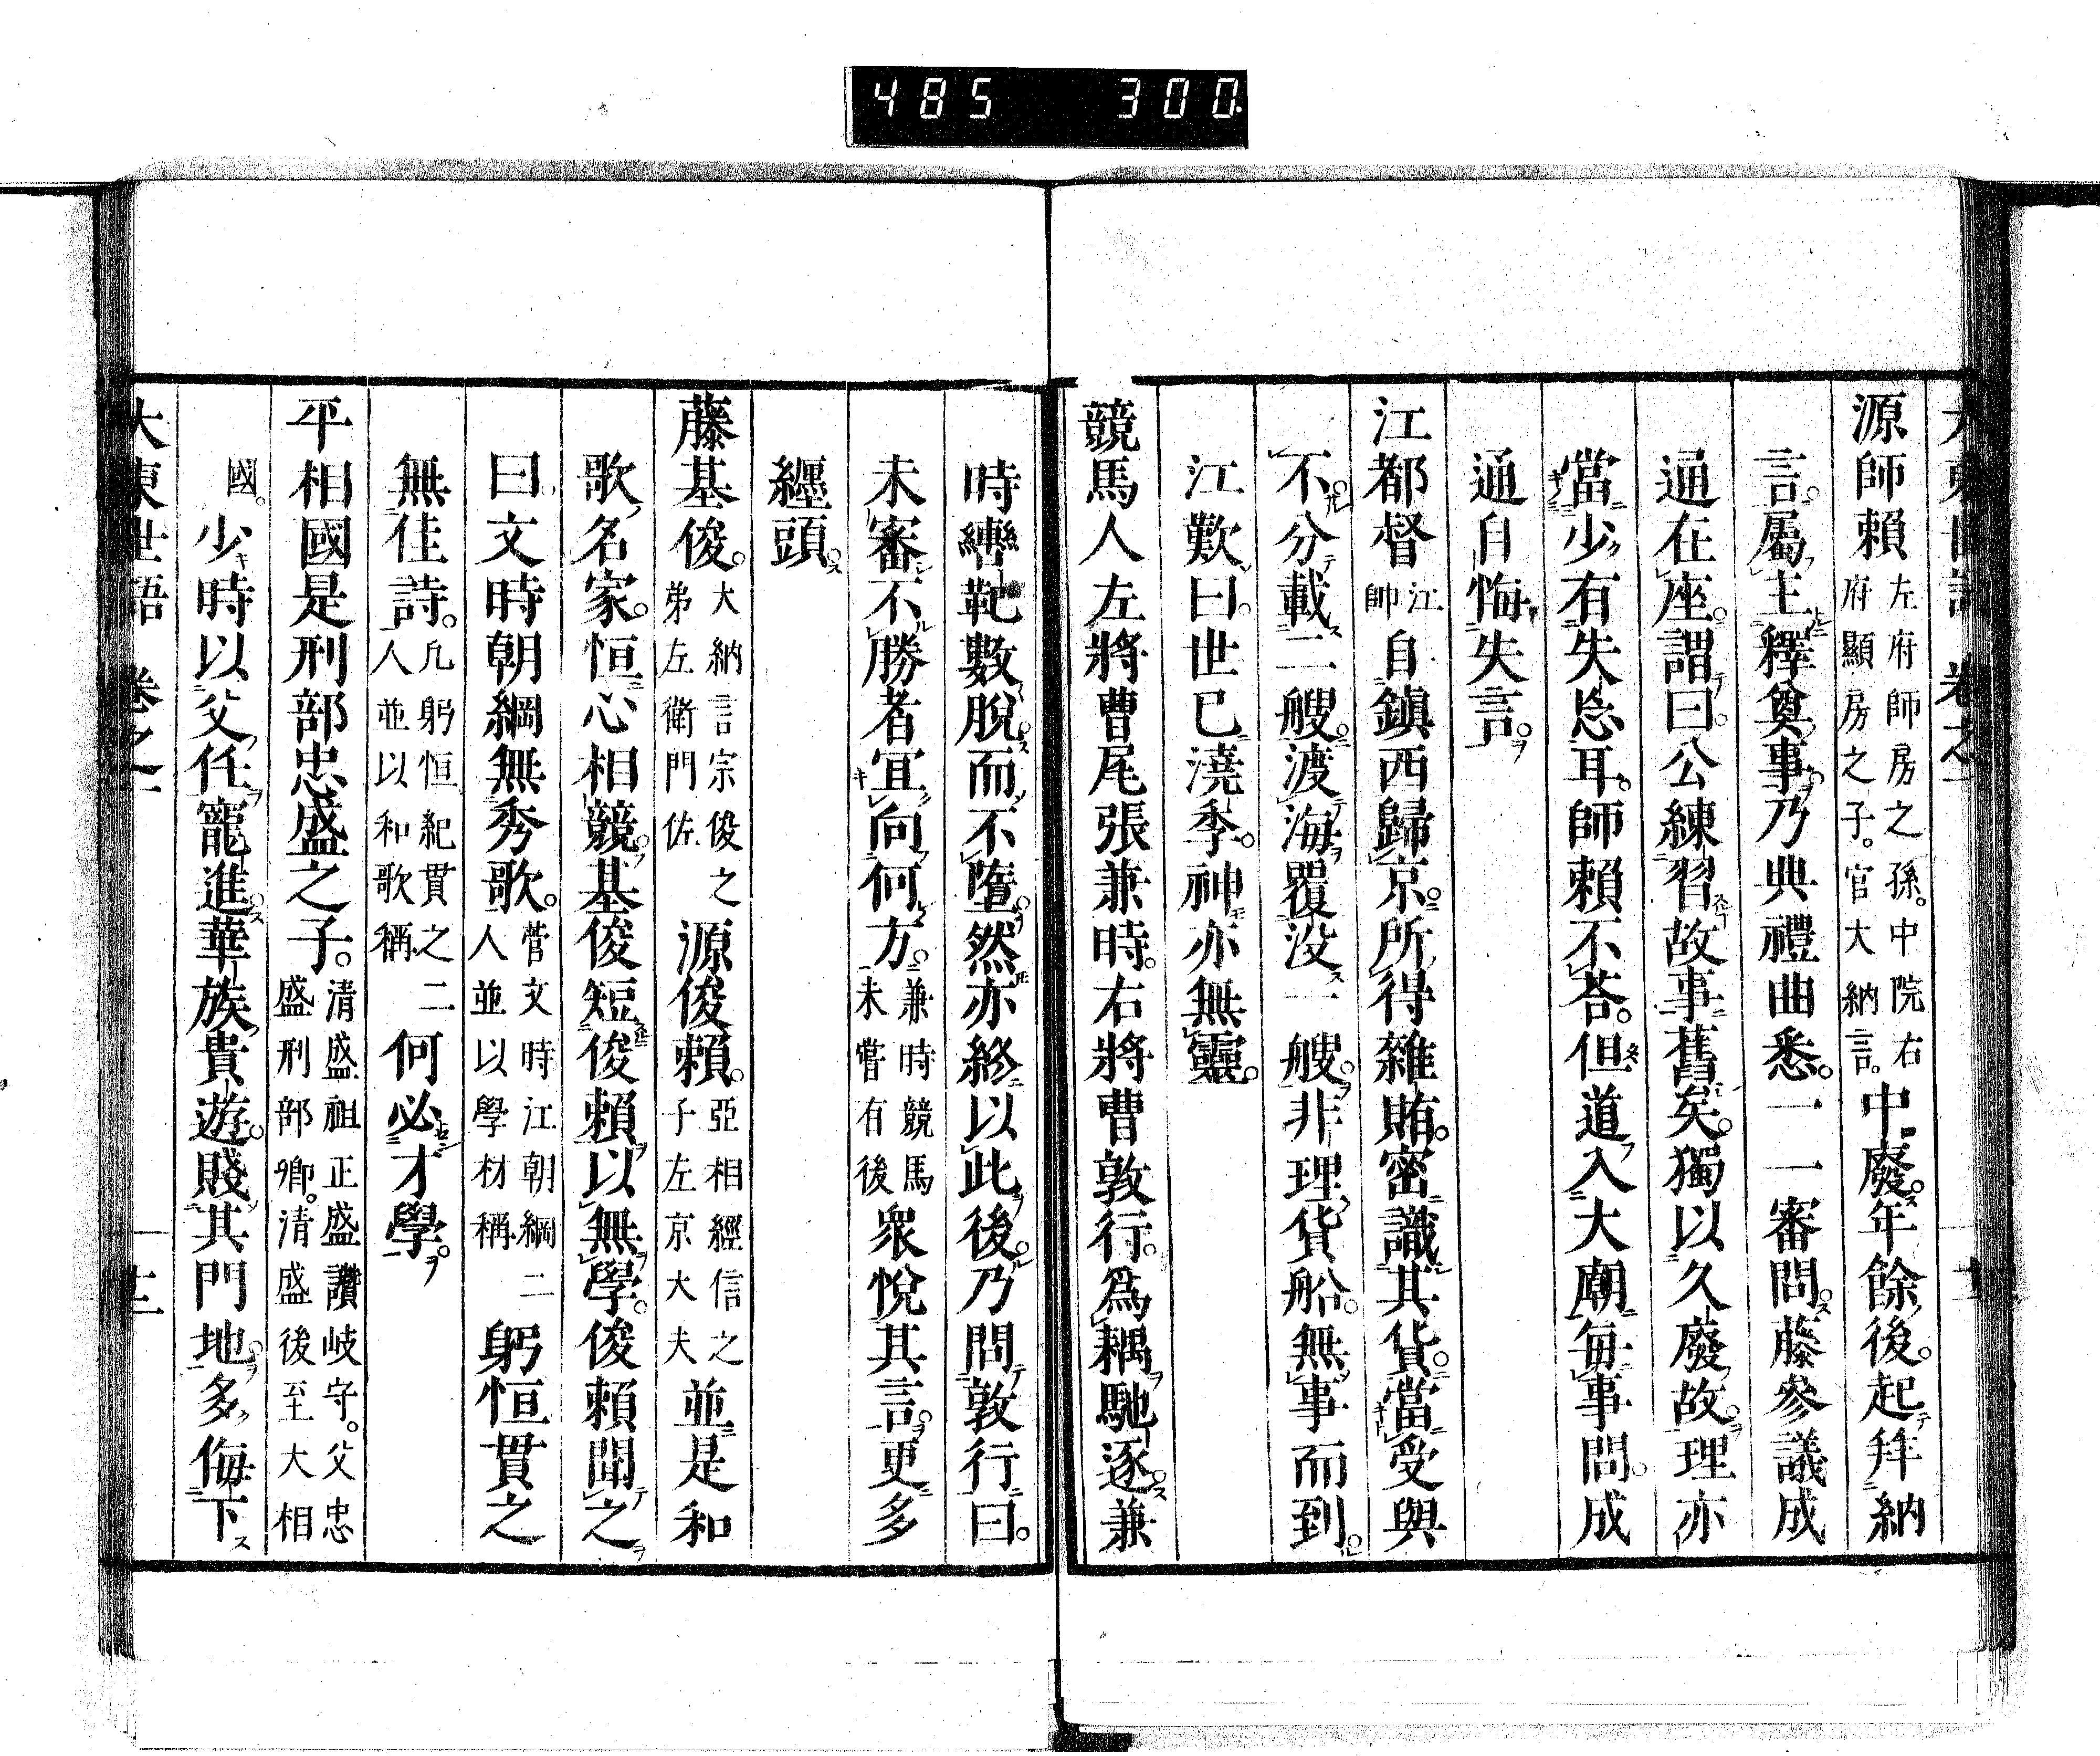 485 300
大東世語 卷之一
源師賴左府師房之孫。中院右府顯房之子。官大納言。中廢。年餘後。起拜納
言。屬主釋奠事。乃典禮曲悉。一一審問。藤參議成
通在座。謂曰。公練習故事舊矣。獨以久廢故。理亦
當少有失忘耳。師賴不荅。但道入大廟。每事問。成
通自悔失言。
江都督江帥自鎮西歸京。所得雜賄。密識其貨。當受與
不。分載二艘。渡海覆没一艘。非理貨船。無事而到。
江歎曰。世已澆季。神亦無靈。
競馬人左將曹尾張兼時。右將曹敦行。爲耦馳逐。兼
時轡靶數脫而不墮。然亦終以此後。乃問敦行曰。
未審不勝者宜向何方。兼時競馬未嘗有後衆悅其言。更多
纏頭。
藤基俊。大納言宗俊之弟左衛門佐源俊賴。亞相經信之子左京大夫並是和
歌名家。恒心相競。基俊短俊賴以無學。俊賴聞之
曰。文時朝綱無秀歌。菅文時江朝綱二人並以學材稱躬恒貫之
無佳詩。凡躬恒紀貫之二人並以和歌稱何必才學。
平相國是刑部忠盛之子。清盛祖正盛讚岐守。父忠盛刑部卿。清盛後至大相
國。少時以父任寵進。華族貴遊。賤其門地。多侮下
大東世語 卷之一 十二